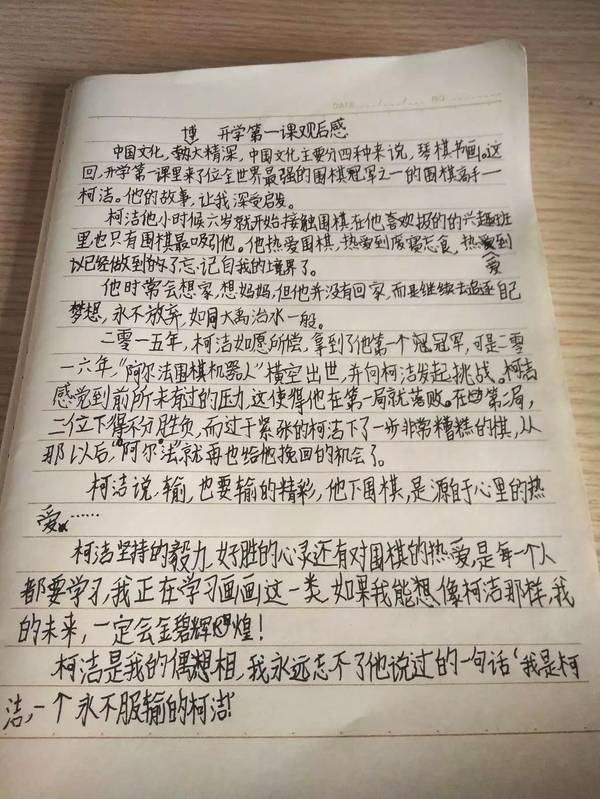 DATE
NO
博 开学第一课观后感
中国文化,大精深,中国文化主要分四种来说,琴棋书画。这
回,开学第一课里来了位全世界最强的围棋冠军之一的围棋高手—
柯洁。他的故事,让我深受启发。
柯洁他小时候六岁就开始接触围棋在他喜欢报的的兴趣班
里,也只有围棋最吸引他。他热爱围棋,热爱到废寝忘食,热爱到
以已经做到做了忘记自我的境界了。 爱
他时常会想家,想妈妈,但他并没有回家,而是继续去追逐自己
梦想,永不放弃,如同大禹治水一般。
二零一五年,柯洁如愿所偿,拿到了他第一个冠冠军,可是二零
一六年,“阿尔法围棋机器人”横空出世,并向柯洁发起挑战。柯洁
感觉到前所未有过的压力,这使得他在第一局就落败。在第二局,
二位下得不分胜负,而过于紧张的柯洁下了一步非常糟糕的棋,从
那以后,“阿尔法”就再也给他挽回的机会了。
柯洁说,输,也要输的精彩,他下围棋,是源于心里的热
爱……
柯洁坚持的毅力,好胜的心灵还有对围棋的热爱,是每一个人
都要学习,我正在学习画画这一类,如果我能想像柯洁那样,我
的未来,一定会金碧辉煌!
柯洁是我的偶想相,我永远忘不了他说过的一句话‘我是柯
洁,一个永不服输的柯洁!’